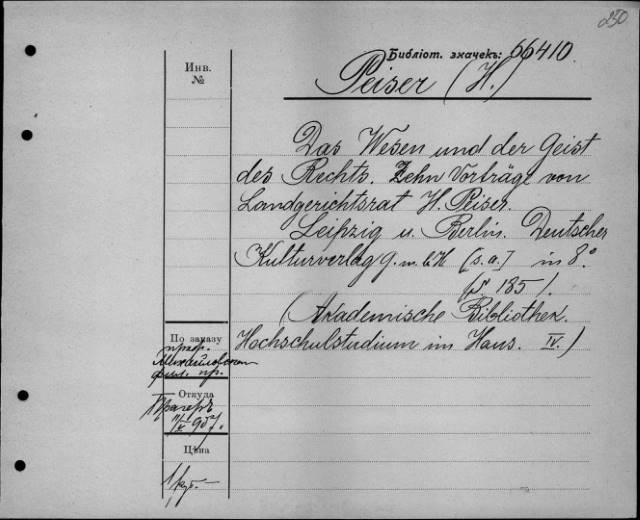 250
Библіот. значекъ: 66410.
Инв.
№
Peiser (H.)
Das Wesen und der Geist
des Rechts. Zehn Vorträge von
Landgerichtsrat H. Peiser.
Leipzig u. Berlin. Deutscher
Kulturverlag g. m. b. H [s. a.] in 8°.
(S. 185).
(Akademische Bibliothek.
Hochschulstudium im Haus. IV.)
По заказу
проф.
Михайловскаго
Откуда
907
Цѣна
1 руб.—